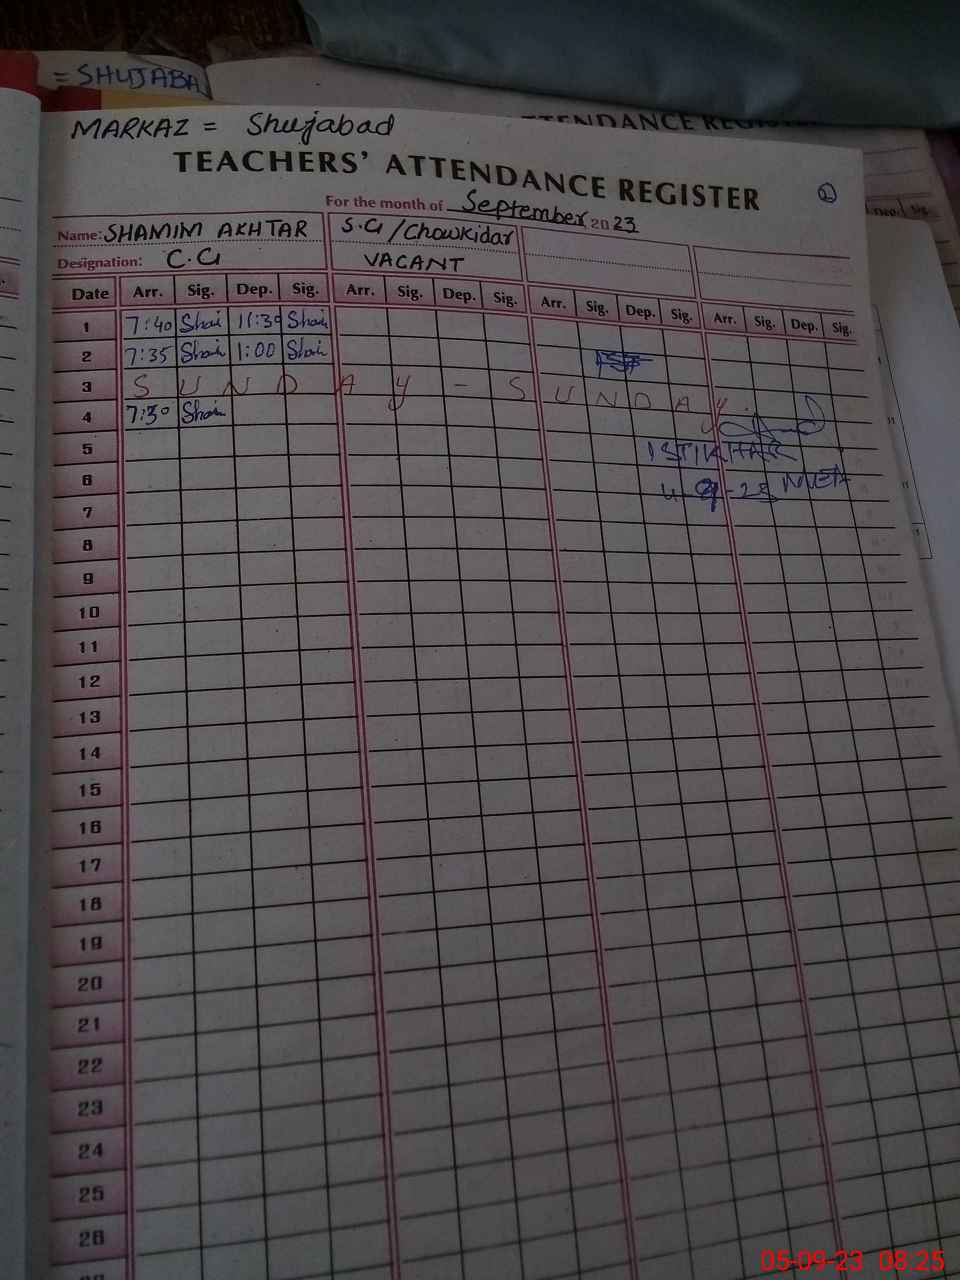 = SHUJABA
MARKAZ = Shujabad
TEACHERS' ATTENDANCE REGISTER
2
For the month of September 2023
Name: SHAMIM AKHTAR S.G/Chowkidar
Designation: C.G VACANT
Date Arr. Sig. Dep. Sig. Arr. Sig. Dep. Sig. Arr. Sig. Dep. Sig. Arr. Sig. Dep. Sig.
1 7:40 Sham 11:30 Sham
2 7:35 Sham 1:00 Sham
3 SUNDAY - SUNDAY
4 7:30 Sham
5
6 4-9-23 MEA
7
8
9
10
11
12
13
14
15
16
17
18
19
20
21
22
23
24
25
26
Dep. Sig.
05-09-23 08:25